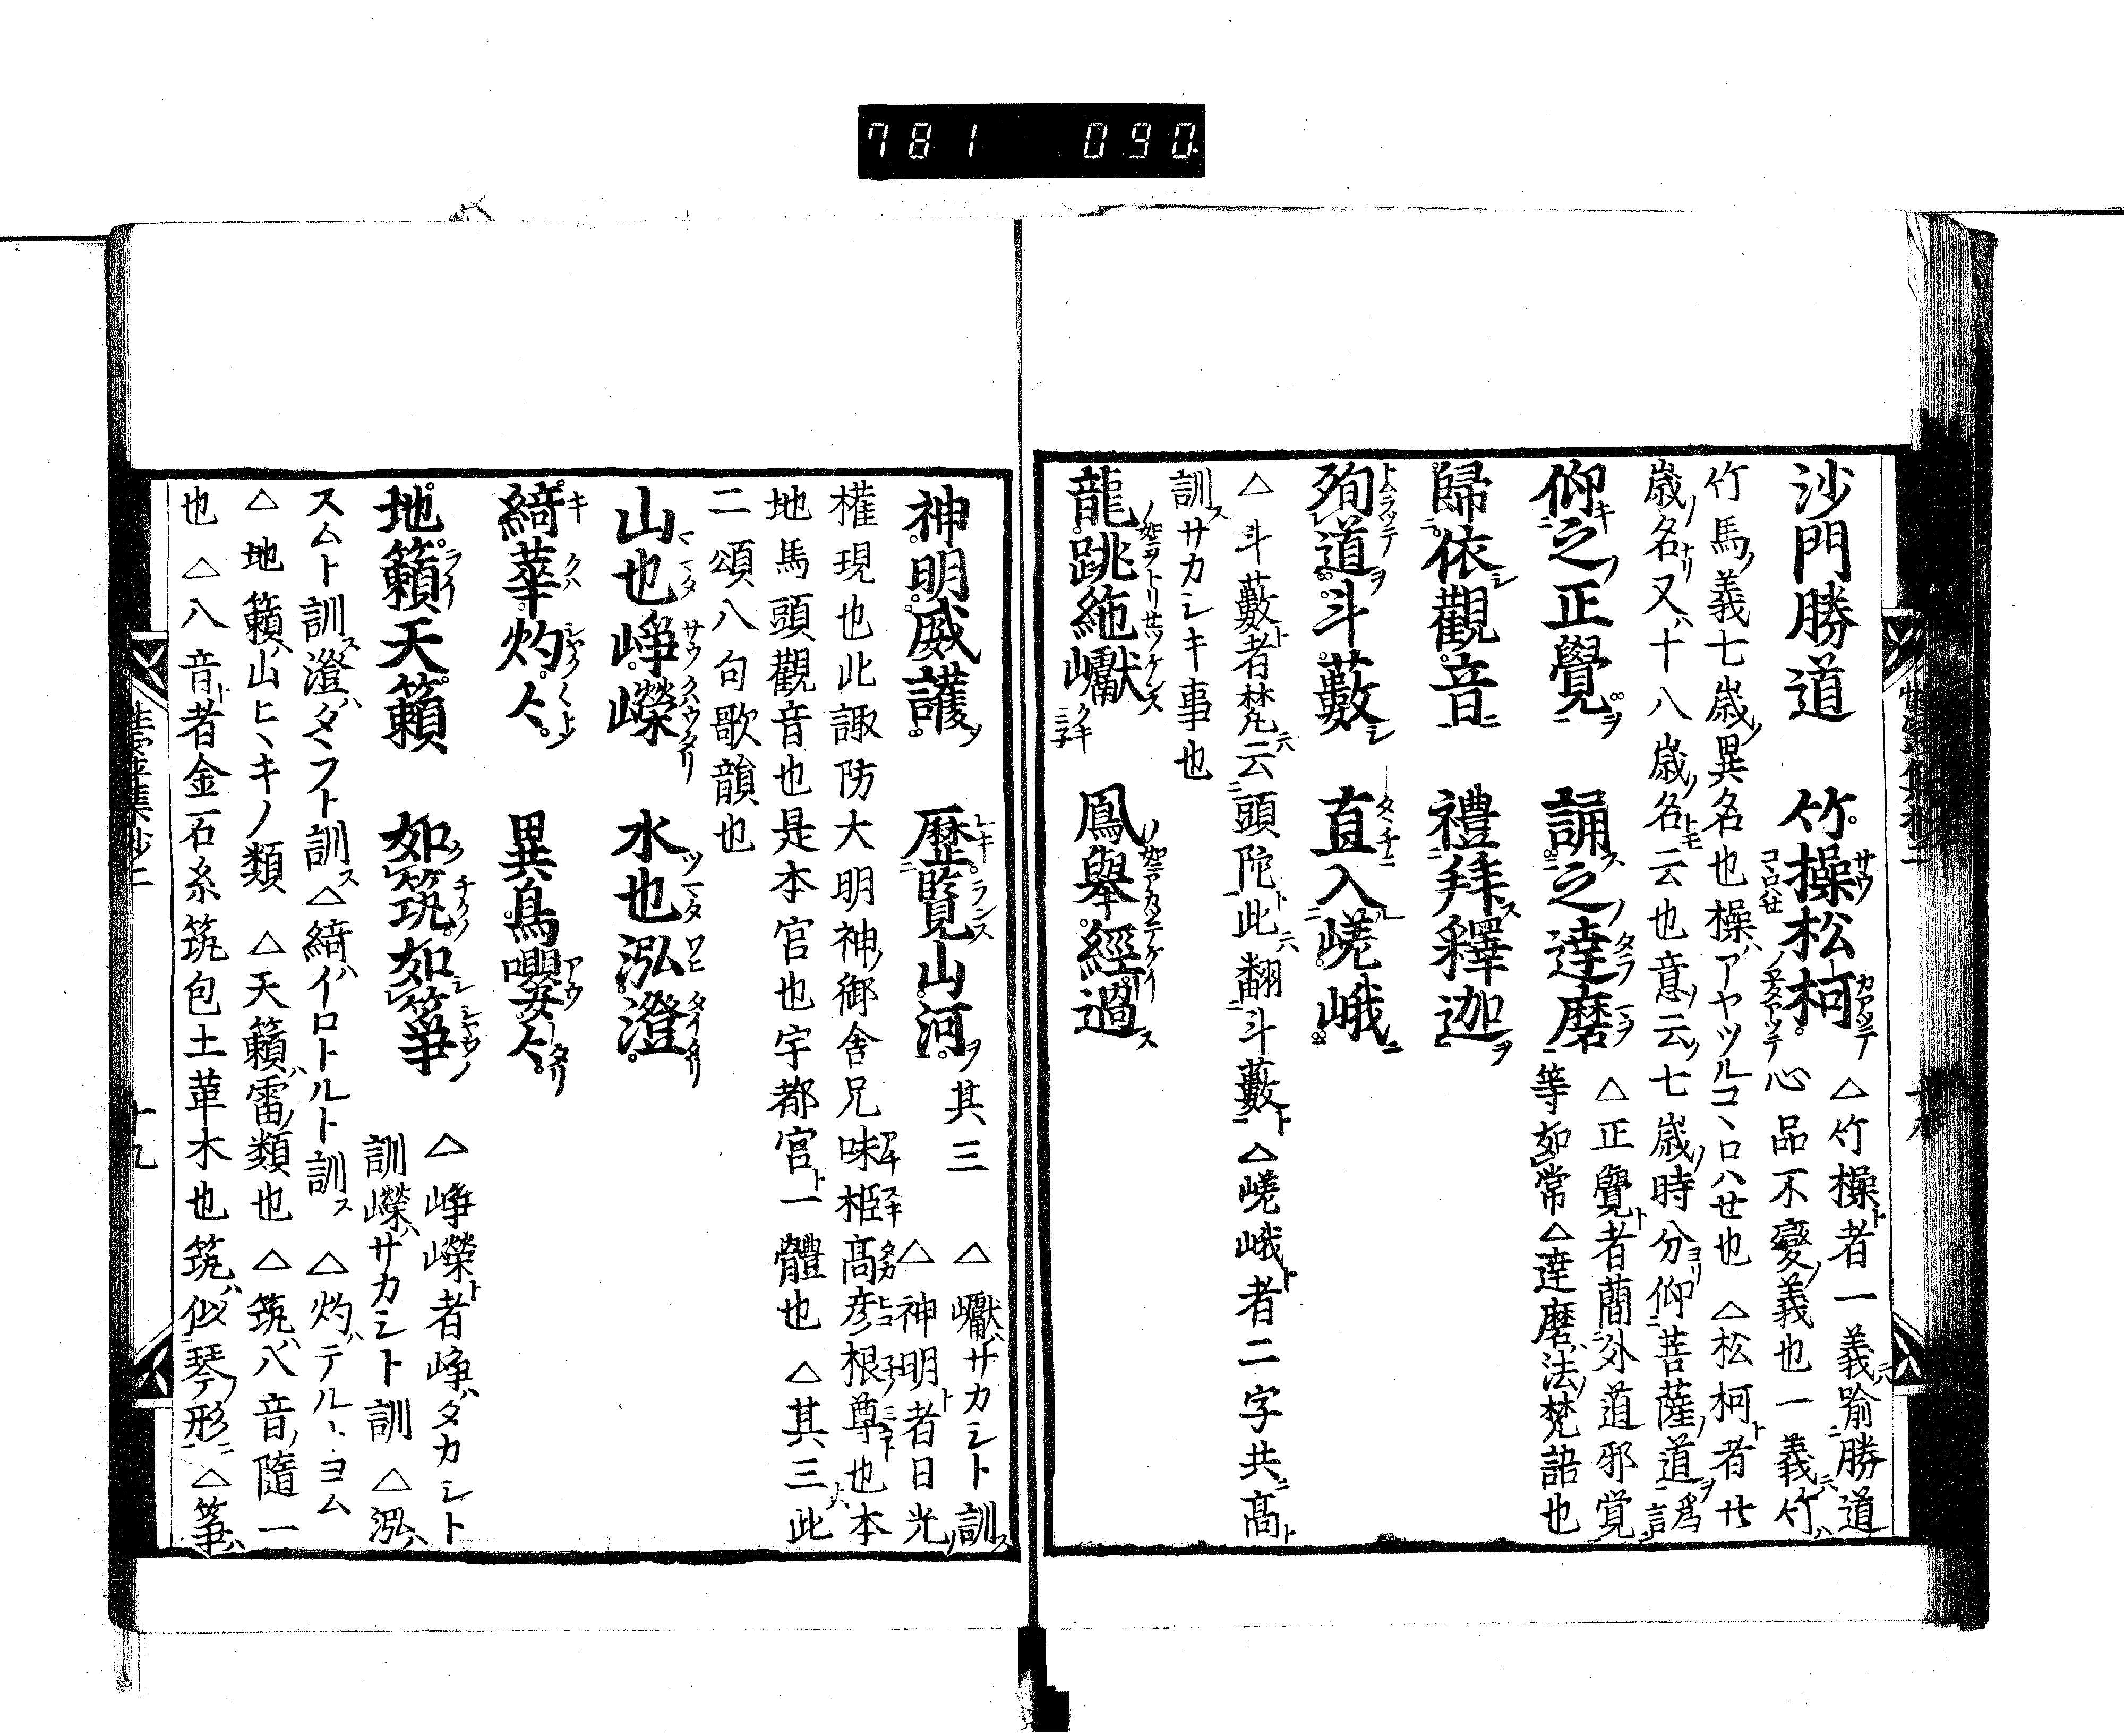 781 090
沙門勝道　竹操松柯　△竹操ト者一義ニハ喻勝道
心品不變ノ義也一義ニハ竹ハ
竹馬ノ義七歳ノ異名也操ハアヤツルコヽロハセ也　△松柯ト者廿
歳ノ名ナリ又ハ十八歳ノ名トモ云也意ノ云ク七歳ノ時分ヨリ仰菩薩ノ道ヲ爲言
仰之正覺　誦之達磨　△正覺ト者蕳外道邪覚
等如常△達磨ハ法ノ梵語也
歸依觀音　禮拜釋迦
殉道斗藪　直入嵯峨
△斗藪ト者梵ニハ云頭陀ト此ニハ翻斗藪ト△嵯峨ト者二字共ニ高ト
訓スサカシキ事也
龍跳絁巘　鳳舉經過
神明威護　歷覧山河　其三　△巘ハサカシト訓ス
△神明ト者日光ノ
權現也此諏防大明神ノ御舎兄味耜高彦根尊也本
地馬頭觀音也是本官也宇都宮ト一體也　△其三此
二頌八句歌韻也
山也崢嶸　水也泓澄
綺華灼々　異鳥嚶々
地籟天籟　如筑如箏　△崢嶸ト者崢ハタカシト
訓嶸ハサカシト訓　△泓ハ
スムト訓ス澄ハタヽフト訓ス△綺ハイロトルト訓ス　△灼ハテルヽヨム
△地籟ハ山ヒヽキノ類　△天籟ハ雷ノ類也　△筑ハ八音ノ隨一
也　△八音ト者金石糸筑包土革木也筑ハ似琴ノ形ニ　△箏ハ
十九